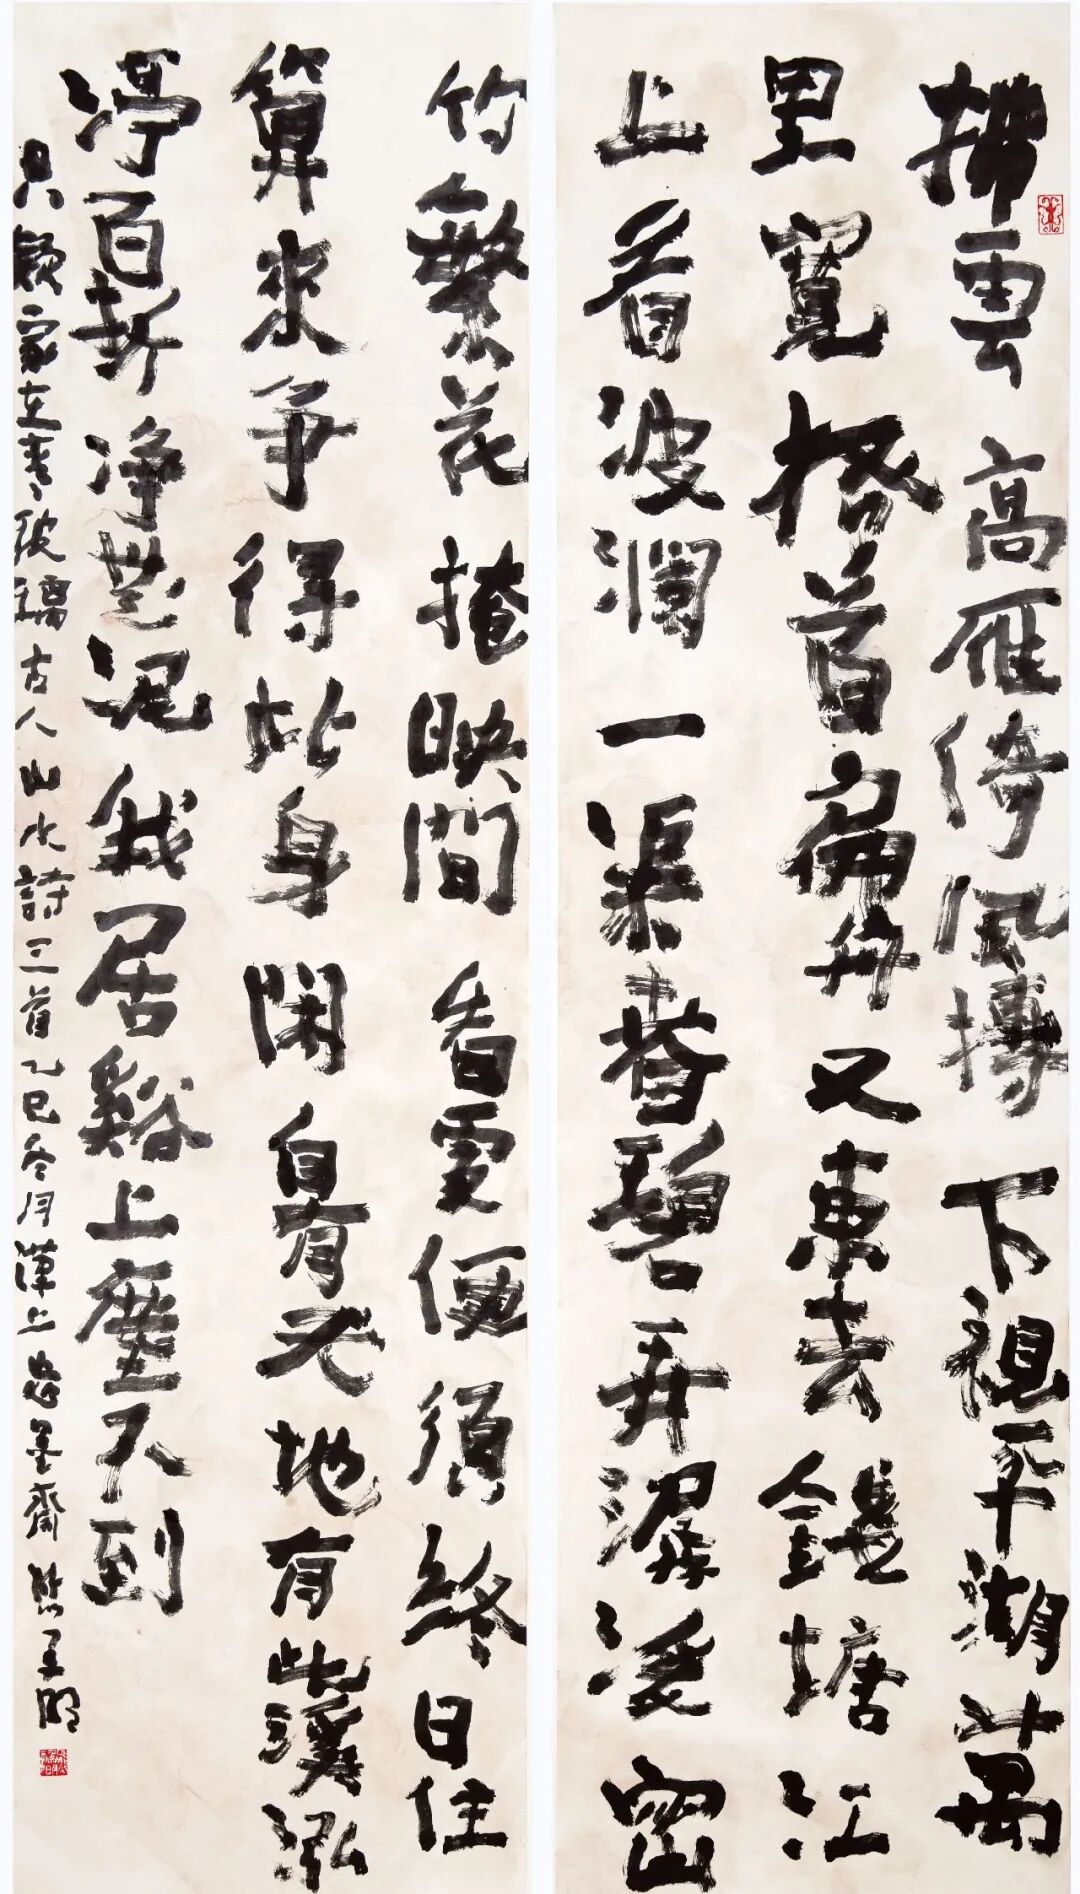 拂雲高雁倚風摶下視平湖萬
里寬搔首扁舟又東去錢塘江
上看波瀾一渠春碧弄潺湲密
竹繁花掩映間看處便須終日住
算來爭得此身閑自有天地有此溪泓
渟百折淨無泥我居谿上塵不到
只疑家在青玻璃古人山水詩三首乙巳冬月漢上墨齋熊明